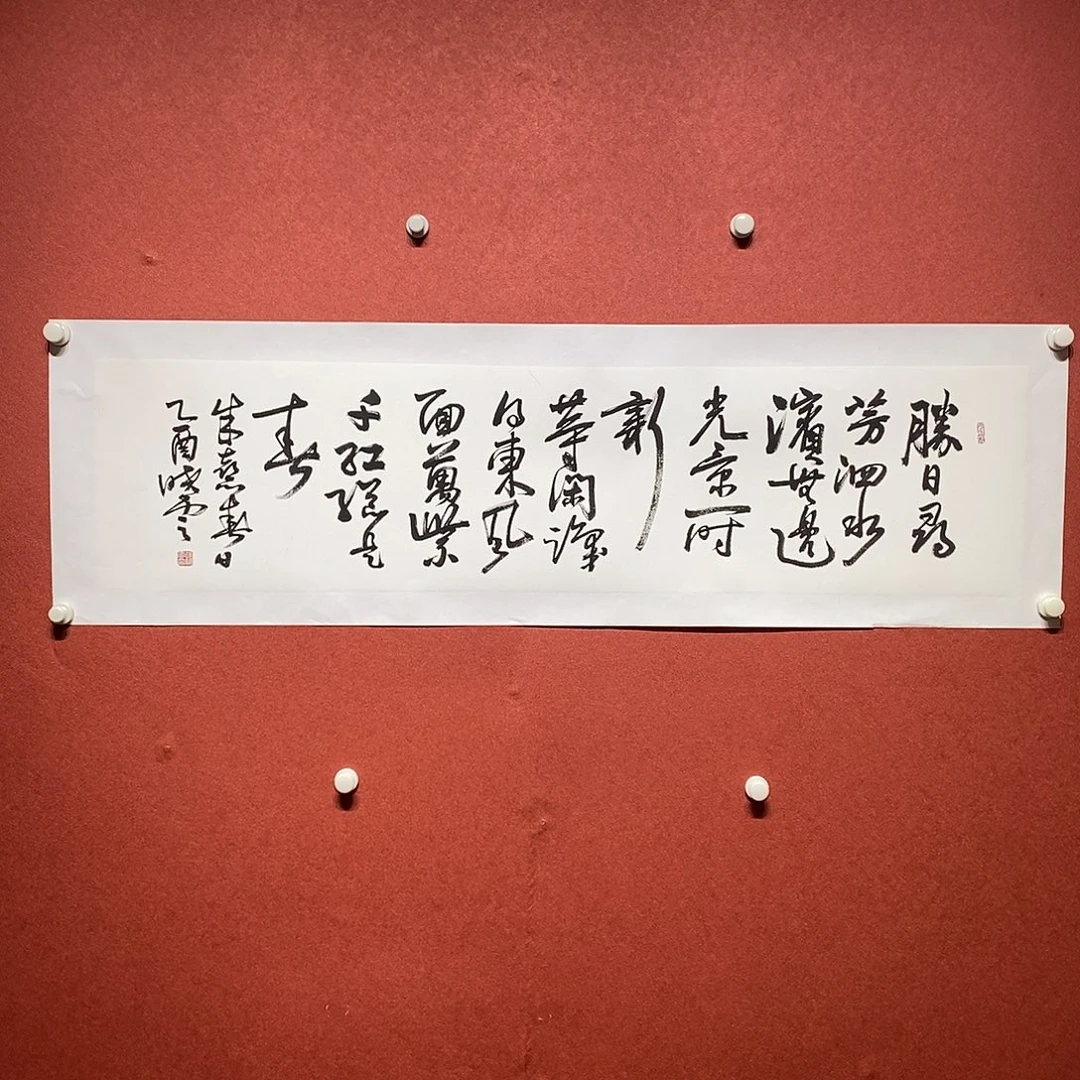 勝日尋
芳泗水
濱無邊
光景一时
新
等閑識
得東風
面萬紫
千紅總是
春
朱熹春日
乙酉晓雲